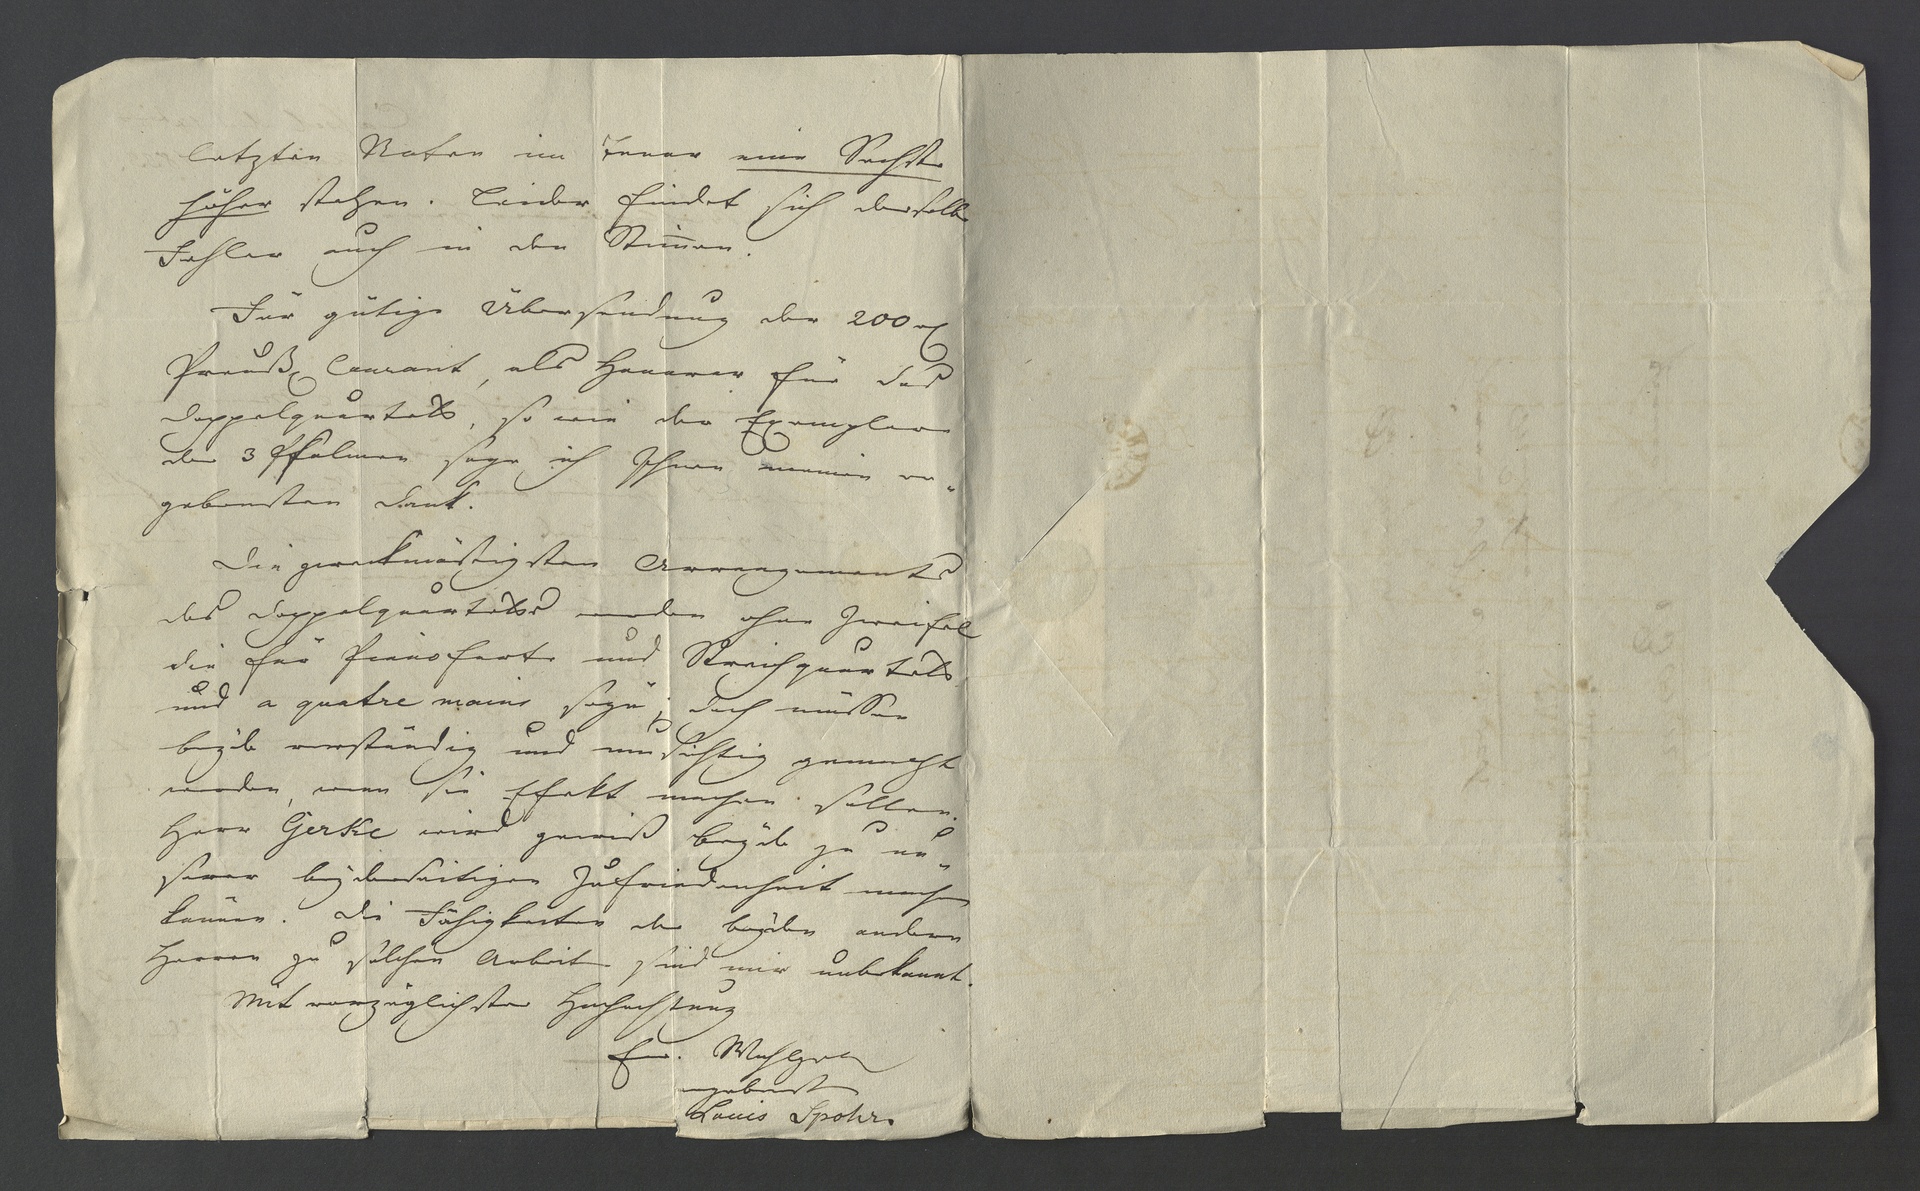 letzten Noten im Tenor eine Sechste
höher stehen. Leider findet sich derselbe
Fehler auch in den Stimmen.
Für gütige Übersendung der 200 rℓ
Preuß. Courant, als Honorar für das
Doppelquartett, so wie der Exemplare
der 3 Psalmen sage ich Ihnen meinen er-
gebensten Dank.
Die zweckmäßigsten Arrangements
des Doppelquartetts werden ohne Zweifel
die für Pianoforte und Streichquartett
und a quatre mains seyn; doch müssen
beyde verständig und umsichtig gemacht
werden, wenn sie Effekt machen sollen.
Herr Gerke wird gewiß beyde zu un-
serer beyderseitigen Zufriedenheit machen
können. Die Fähigkeiten der beyden andern
Herren zu solchen Arbeiten sind mir unbekannt.
Mit vorzüglichster Hochachtung
Ew. Wohlgeb.
ergebenster
Louis Spohr.